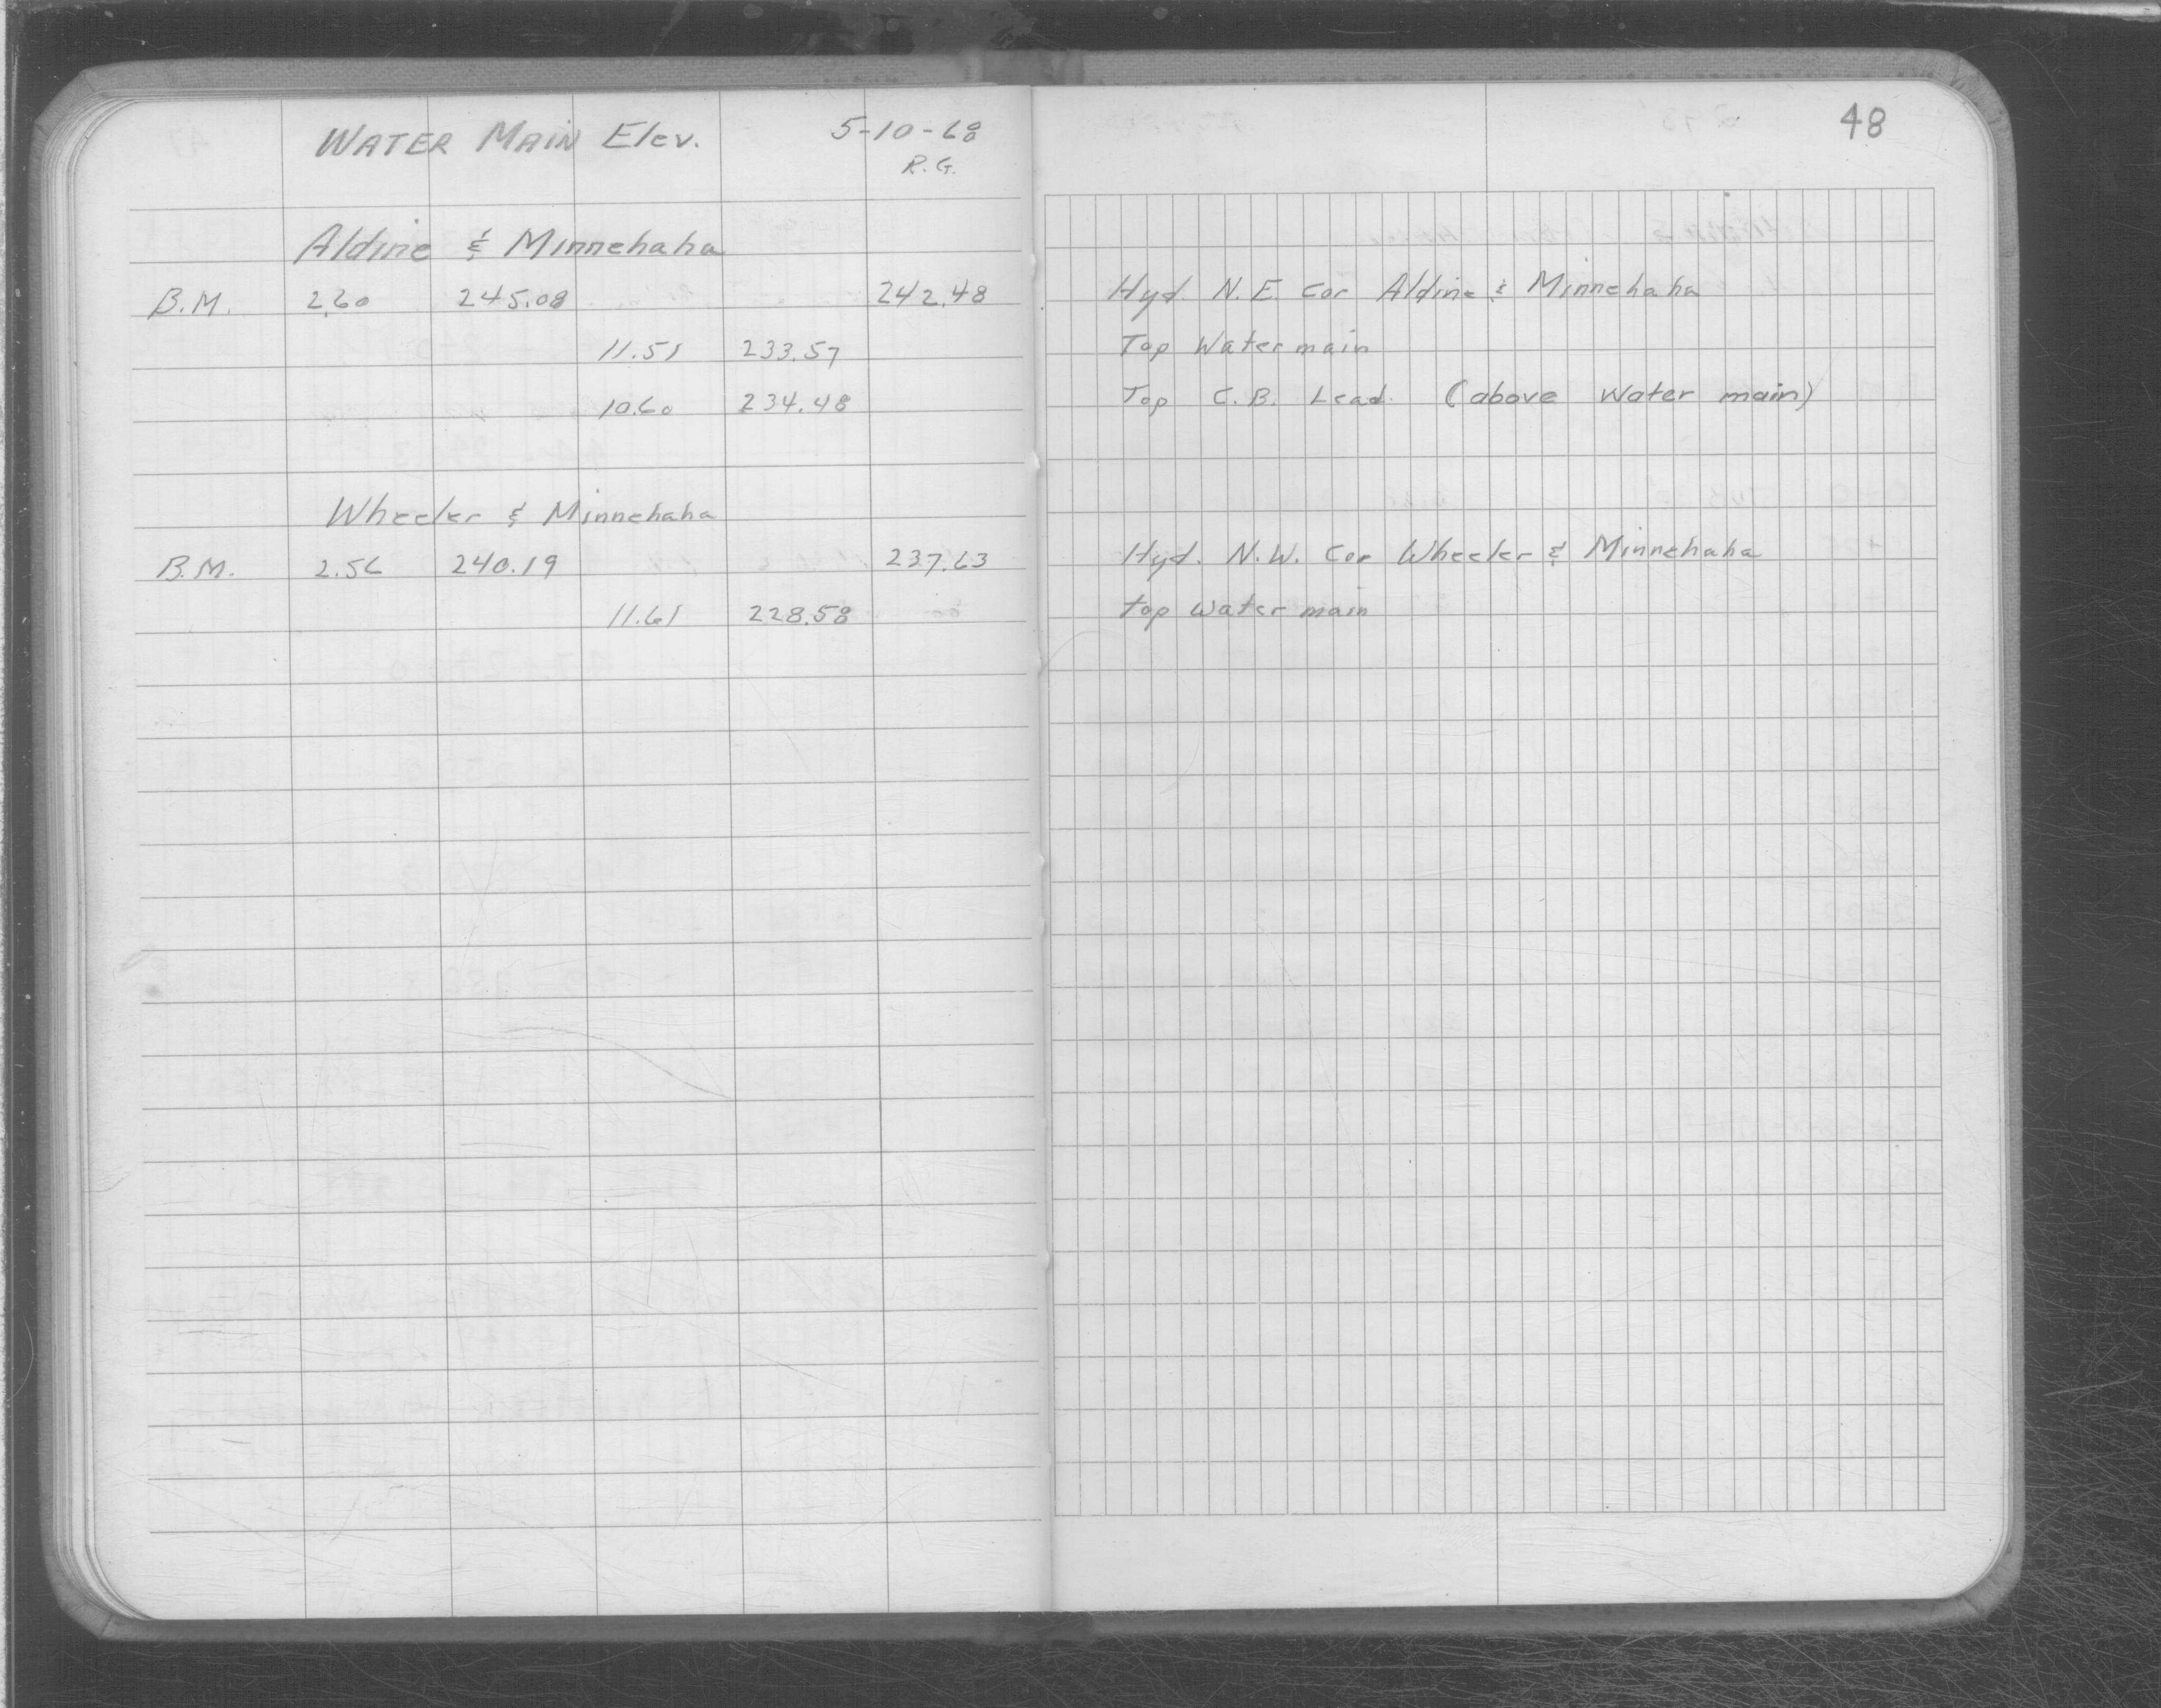 WATER MAIN Elev. 5-10-68
R.G.
Aldine & Minnehaha
B.M. 2.60 245.08 242.48
11.51 233.57
10.60 234.48
Wheeler & Minnehaha
B.M. 2.56 240.19 237.63
11.61 228.58
48
Hyd. N.E. Cor Aldine & Minnehaha
Top Water main
Top C.B. Lead. (above water main)
Hyd. N.W. Cor Wheeler & Minnehaha
top water main